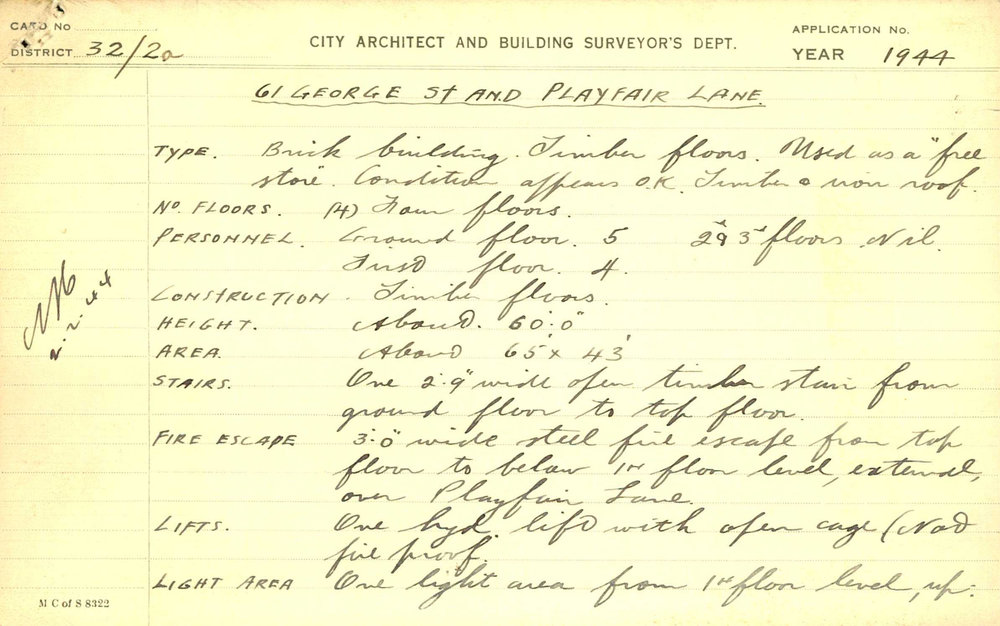 CARD No
DISTRICT 32/2a
CITY ARCHITECT AND BUILDING SURVEYOR'S DEPT.
APPLICATION No.
YEAR 1944
61 GEORGE St AND PLAYFAIR LANE.
TYPE. Brick building. Timber floors. Used as a "free
store". Condition appears O.K. Timber & iron roof.
No. FLOORS. (4) Four floors.
PERSONNEL. Ground floor. 5 2nd & 3rd floors Nil.
First floor. 4.
CONSTRUCTION. Timber floors.
HEIGHT. About. 60'.0"
AREA. About 65' x 43'
STAIRS. One 2'.9" wide open timber stair from
ground floor to top floor.
FIRE ESCAPE 3'.0" wide steel fire escape from top
floor to below 1st floor level, external,
over Playfair Lane.
LIFTS. One hyd. lift with open cage (Not
fire proof.
LIGHT AREA One light area from 1st floor level, up.
2.2.44
M C of S 8322